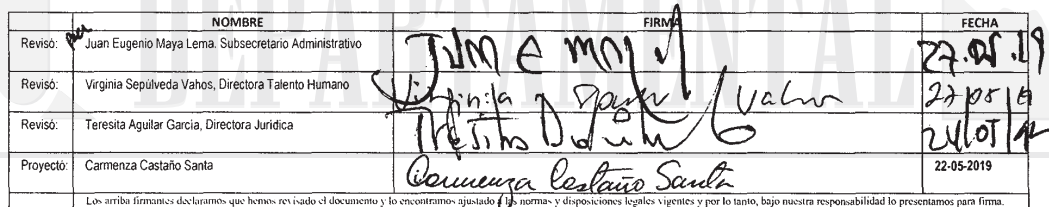 DEPARTAMENTAL
NOMBRE FIRMA FECHA
Revisó: Juan Eugenio Maya Lema. Subsecretario Administrativo JUAN E MAYA 27.05.19
Revisó: Virginia Sepúlveda Vahos, Directora Talento Humano Virginia Vahos 27/05/19
Revisó: Teresita Aguilar Garcia, Directora Jurídica Teresita Aguilar 24/05/
Proyectó: Carmenza Castaño Santa Carmenza Castaño Santa 22-05-2019
Los arriba firmantes declaramos que hemos revisado el documento y lo encontramos ajustado a las normas y disposiciones legales vigentes y por lo tanto, bajo nuestra responsabilidad lo presentamos para firma.